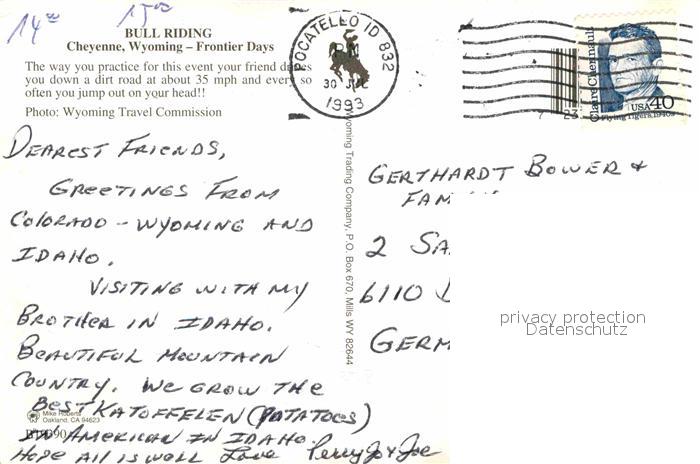 14⁰⁰ 15⁰⁰
BULL RIDING
Cheyenne, Wyoming – Frontier Days
The way you practice for this event your friend drives
you down a dirt road at about 35 mph and every so
often you jump out on your head!!
Photo: Wyoming Travel Commission
POCATELLO ID 832
PM
30 JUL
1993
Claire Chennault
USA 40
Flying Tigers, 1940s
DEAREST FRIENDS,
GREETINGS FROM
COLORADO - WYOMING AND
IDAHO.
VISITING WITH MY
BROTHER IN IDAHO.
BEAUTIFUL MOUNTAIN
COUNTRY. WE GROW THE
BEST KATOFFELEN (POTATOES)
IN AMERICAN IN IDAHO.
HOPE ALL IS WELL Love Perry Jo & Joe
Mike Roberts
Oakland, CA 94623
Wyoming Trading Company, P.O. Box 670, Mills WY 82644
GERTHARDT BOWER +
FAM
2 SA
6110
GERM
privacy protection
Datenschutz